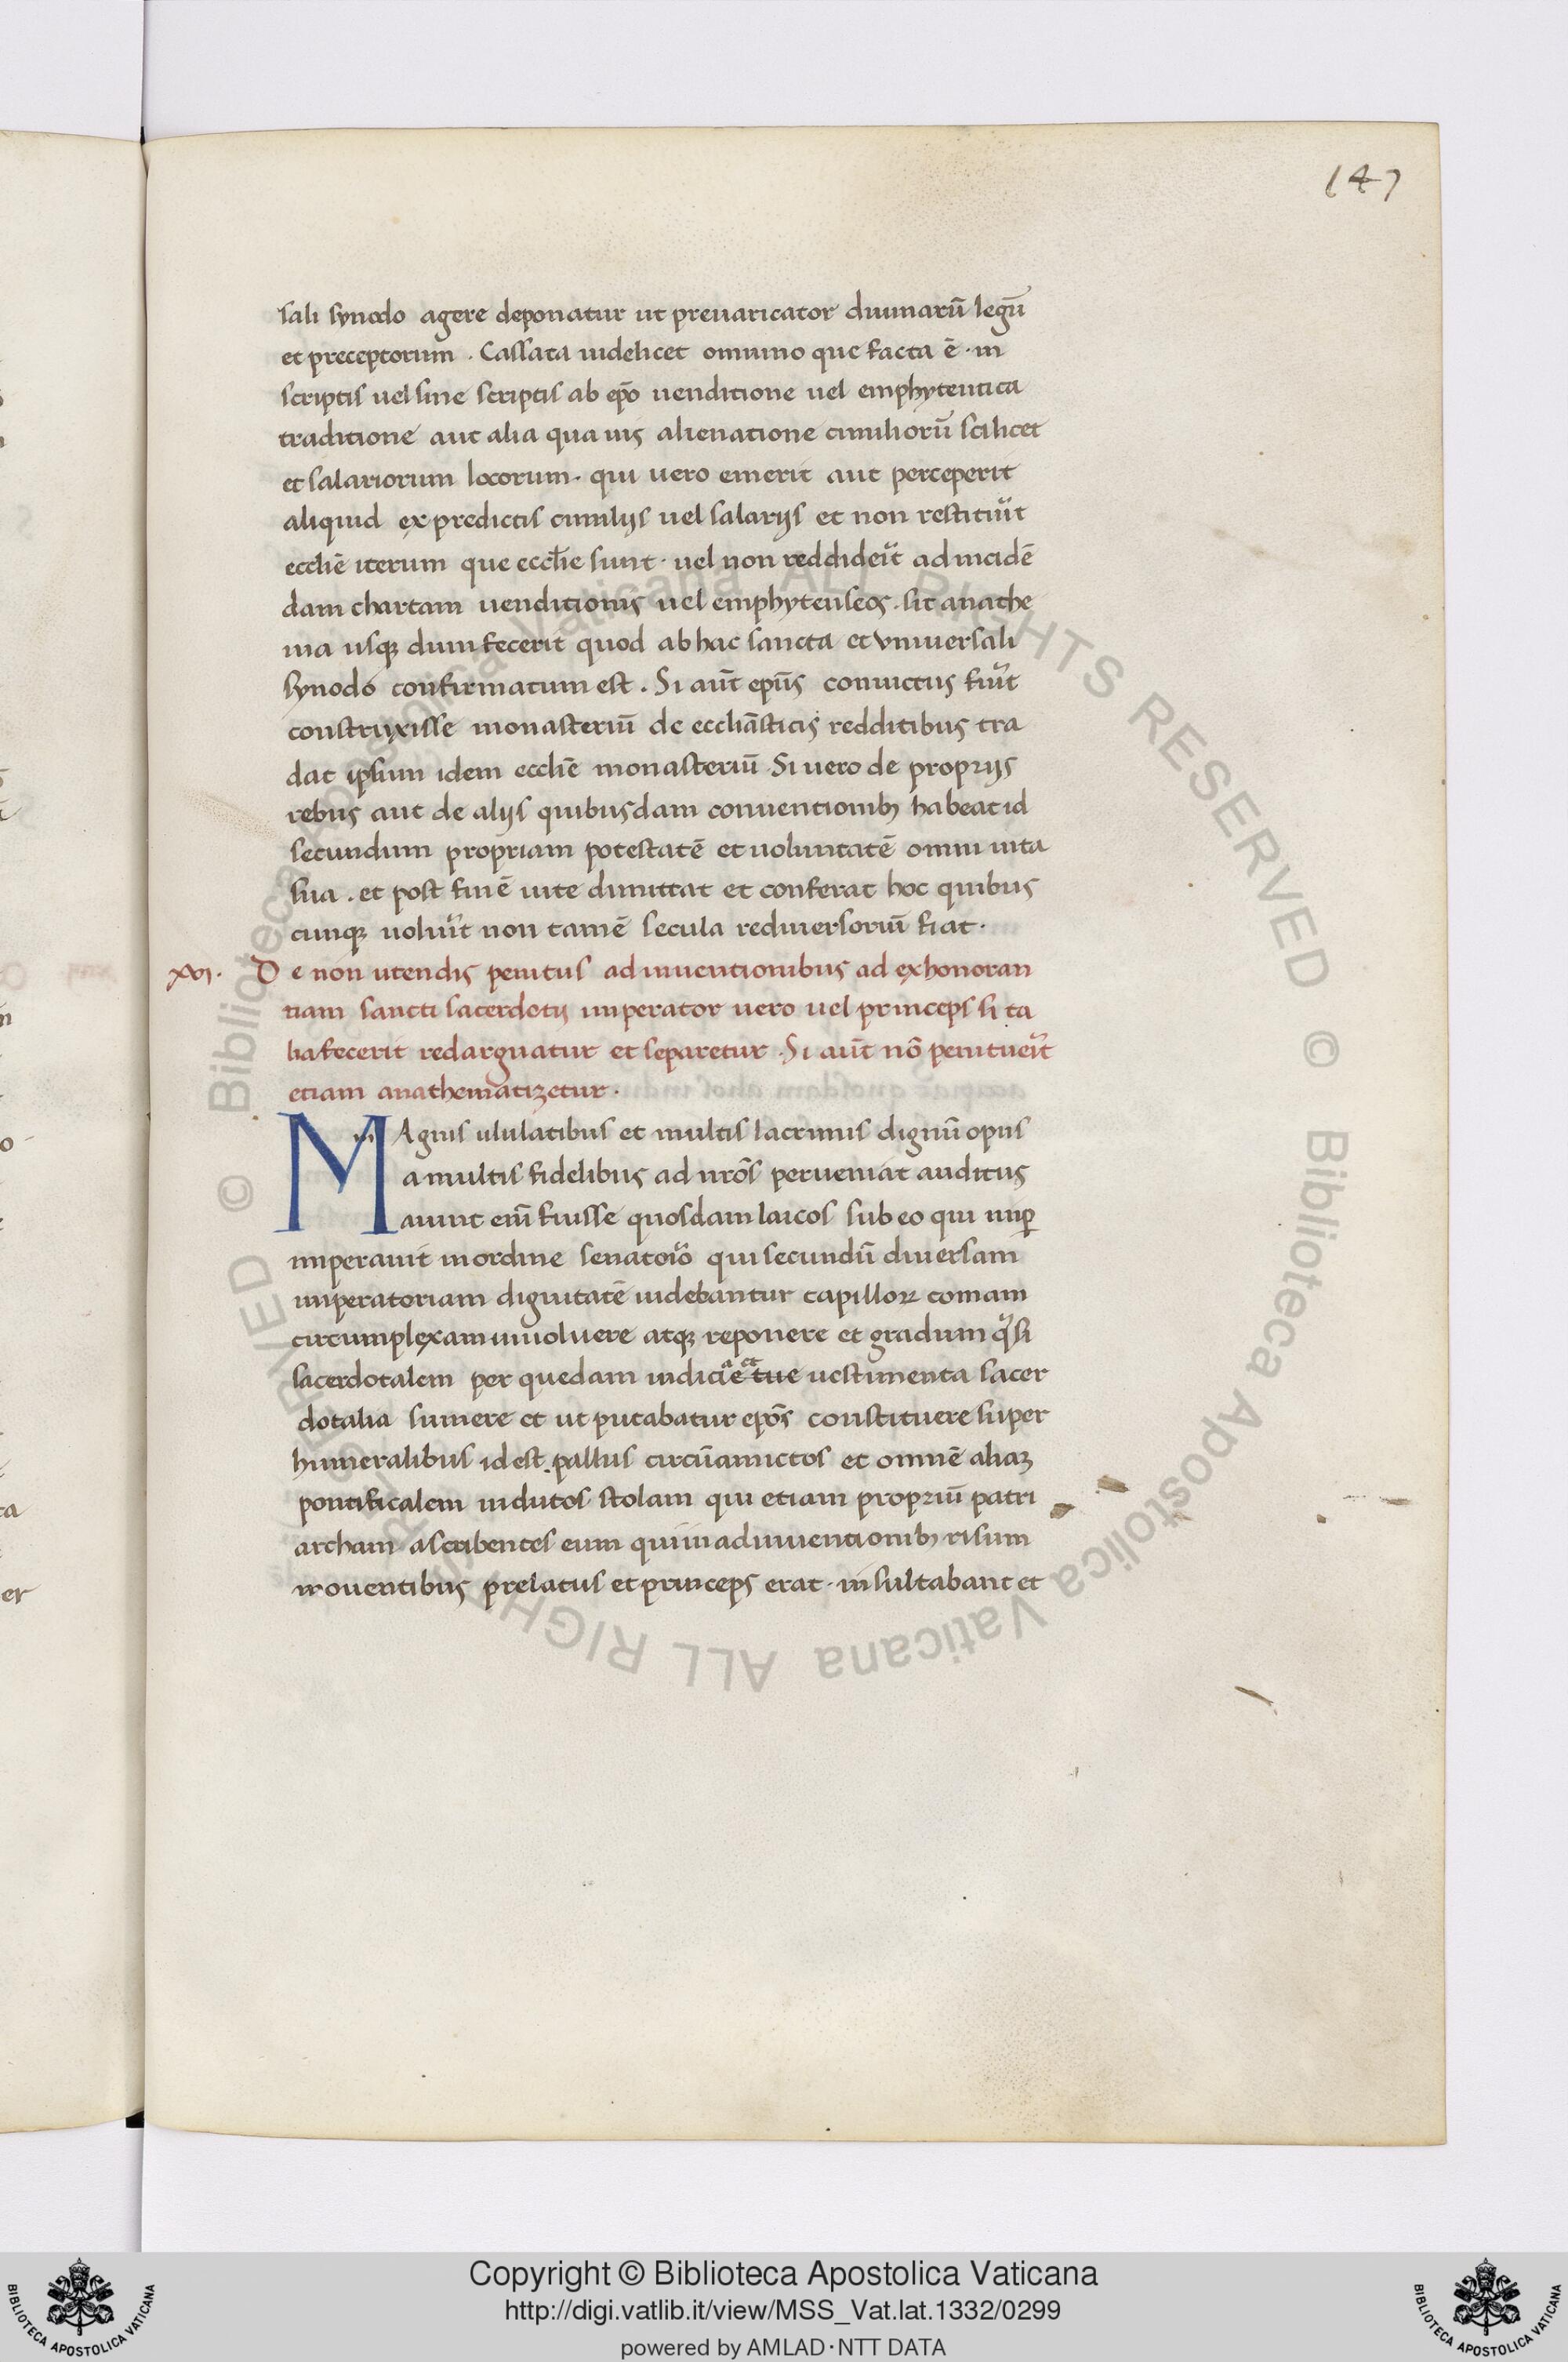 147
sali synodo agere deponatur ut preuaricator diuinarū legū
et preceptorum . Cassata uidelicet omnino que facta ē . in
scriptis uel sine scriptis ab ep̄o uenditione uel emphyteutica
traditione aut alia qua uis alienatione cimiliorū scilicet
et salariorum locorum . qui uero emerit aut perceperit
aliquid ex predictis cimilijs uel salarijs et non restitu͛it
eccl̄ie iterum que eccl̄ie sunt . uel non reddide͛it ad incidē
dam chartam uenditionis uel emphyteuseos . sit anathe
ma usqꝫ dum fecerit quod ab hac sancta et vniuersali
synodo confirmatum est . Si aūt ep̄us conuictus fu͛it
construxisse monasteriū de eccl̄iasticis redditibus tra
dat ipsum idem eccl̄ie monasteriū . Si uero de proprijs
rebus aut de alijs quibusdam conuentionibꝫ habeat id
secundum propriam potestatē et uoluntatē omni uita
sua . et post finē uite dimittat et conferat hoc quibus
cunqꝫ uolu͛it non tamē secula rediuersoriū fiat .
xvi . De non utendis penitus ad inuentionibus ad exhonoran
tiam sancti sacerdotij imperator uero uel princeps si ta
lia fecerit redarguatur et separetur . Si aūt nō penitue͛it
etiam anathematizetur .
m MAgnis ululatibus et multis lacrimis dignū opus
a multis fidelibus ad nr̄os perueniat auditus
aiunt eni̅ fuisse quosdam laicos sub eo qui nuꝑ
imperauit in ordine senatoi͛o qui secundū diuersam
imperatoriam dignitatē uidebantur capilloꝝ comam
circumplexam inuoluere atqꝫ reponere et gradum qͣsi
sacerdotalem per quedam indicia et tue uestimenta sacer
dotalia sumere et ut putabatur ep̄os constituere super
humeralibus id est . pallus circūamictos et omnē aliaꝫ
pontificalem indutos stolam qui etiam propriū patri
archam ascribentes eum qui in ad inuentionibꝫ risum
mouentibus prelatus et princeps erat . insultabant et
Copyright © Biblioteca Apostolica Vaticana
http://digi.vatlib.it/view/MSS_Vat.lat.1332/0299
powered by AMLAD·NTT DATA
BIBLIOTECA APOSTOLICA VATICANA
BIBLIOTECA APOSTOLICA VATICANA
© Biblioteca Apostolica Vaticana ALL RIGHTS RESERVED © Biblioteca Apostolica Vaticana ALL RIGHTS RESERVED